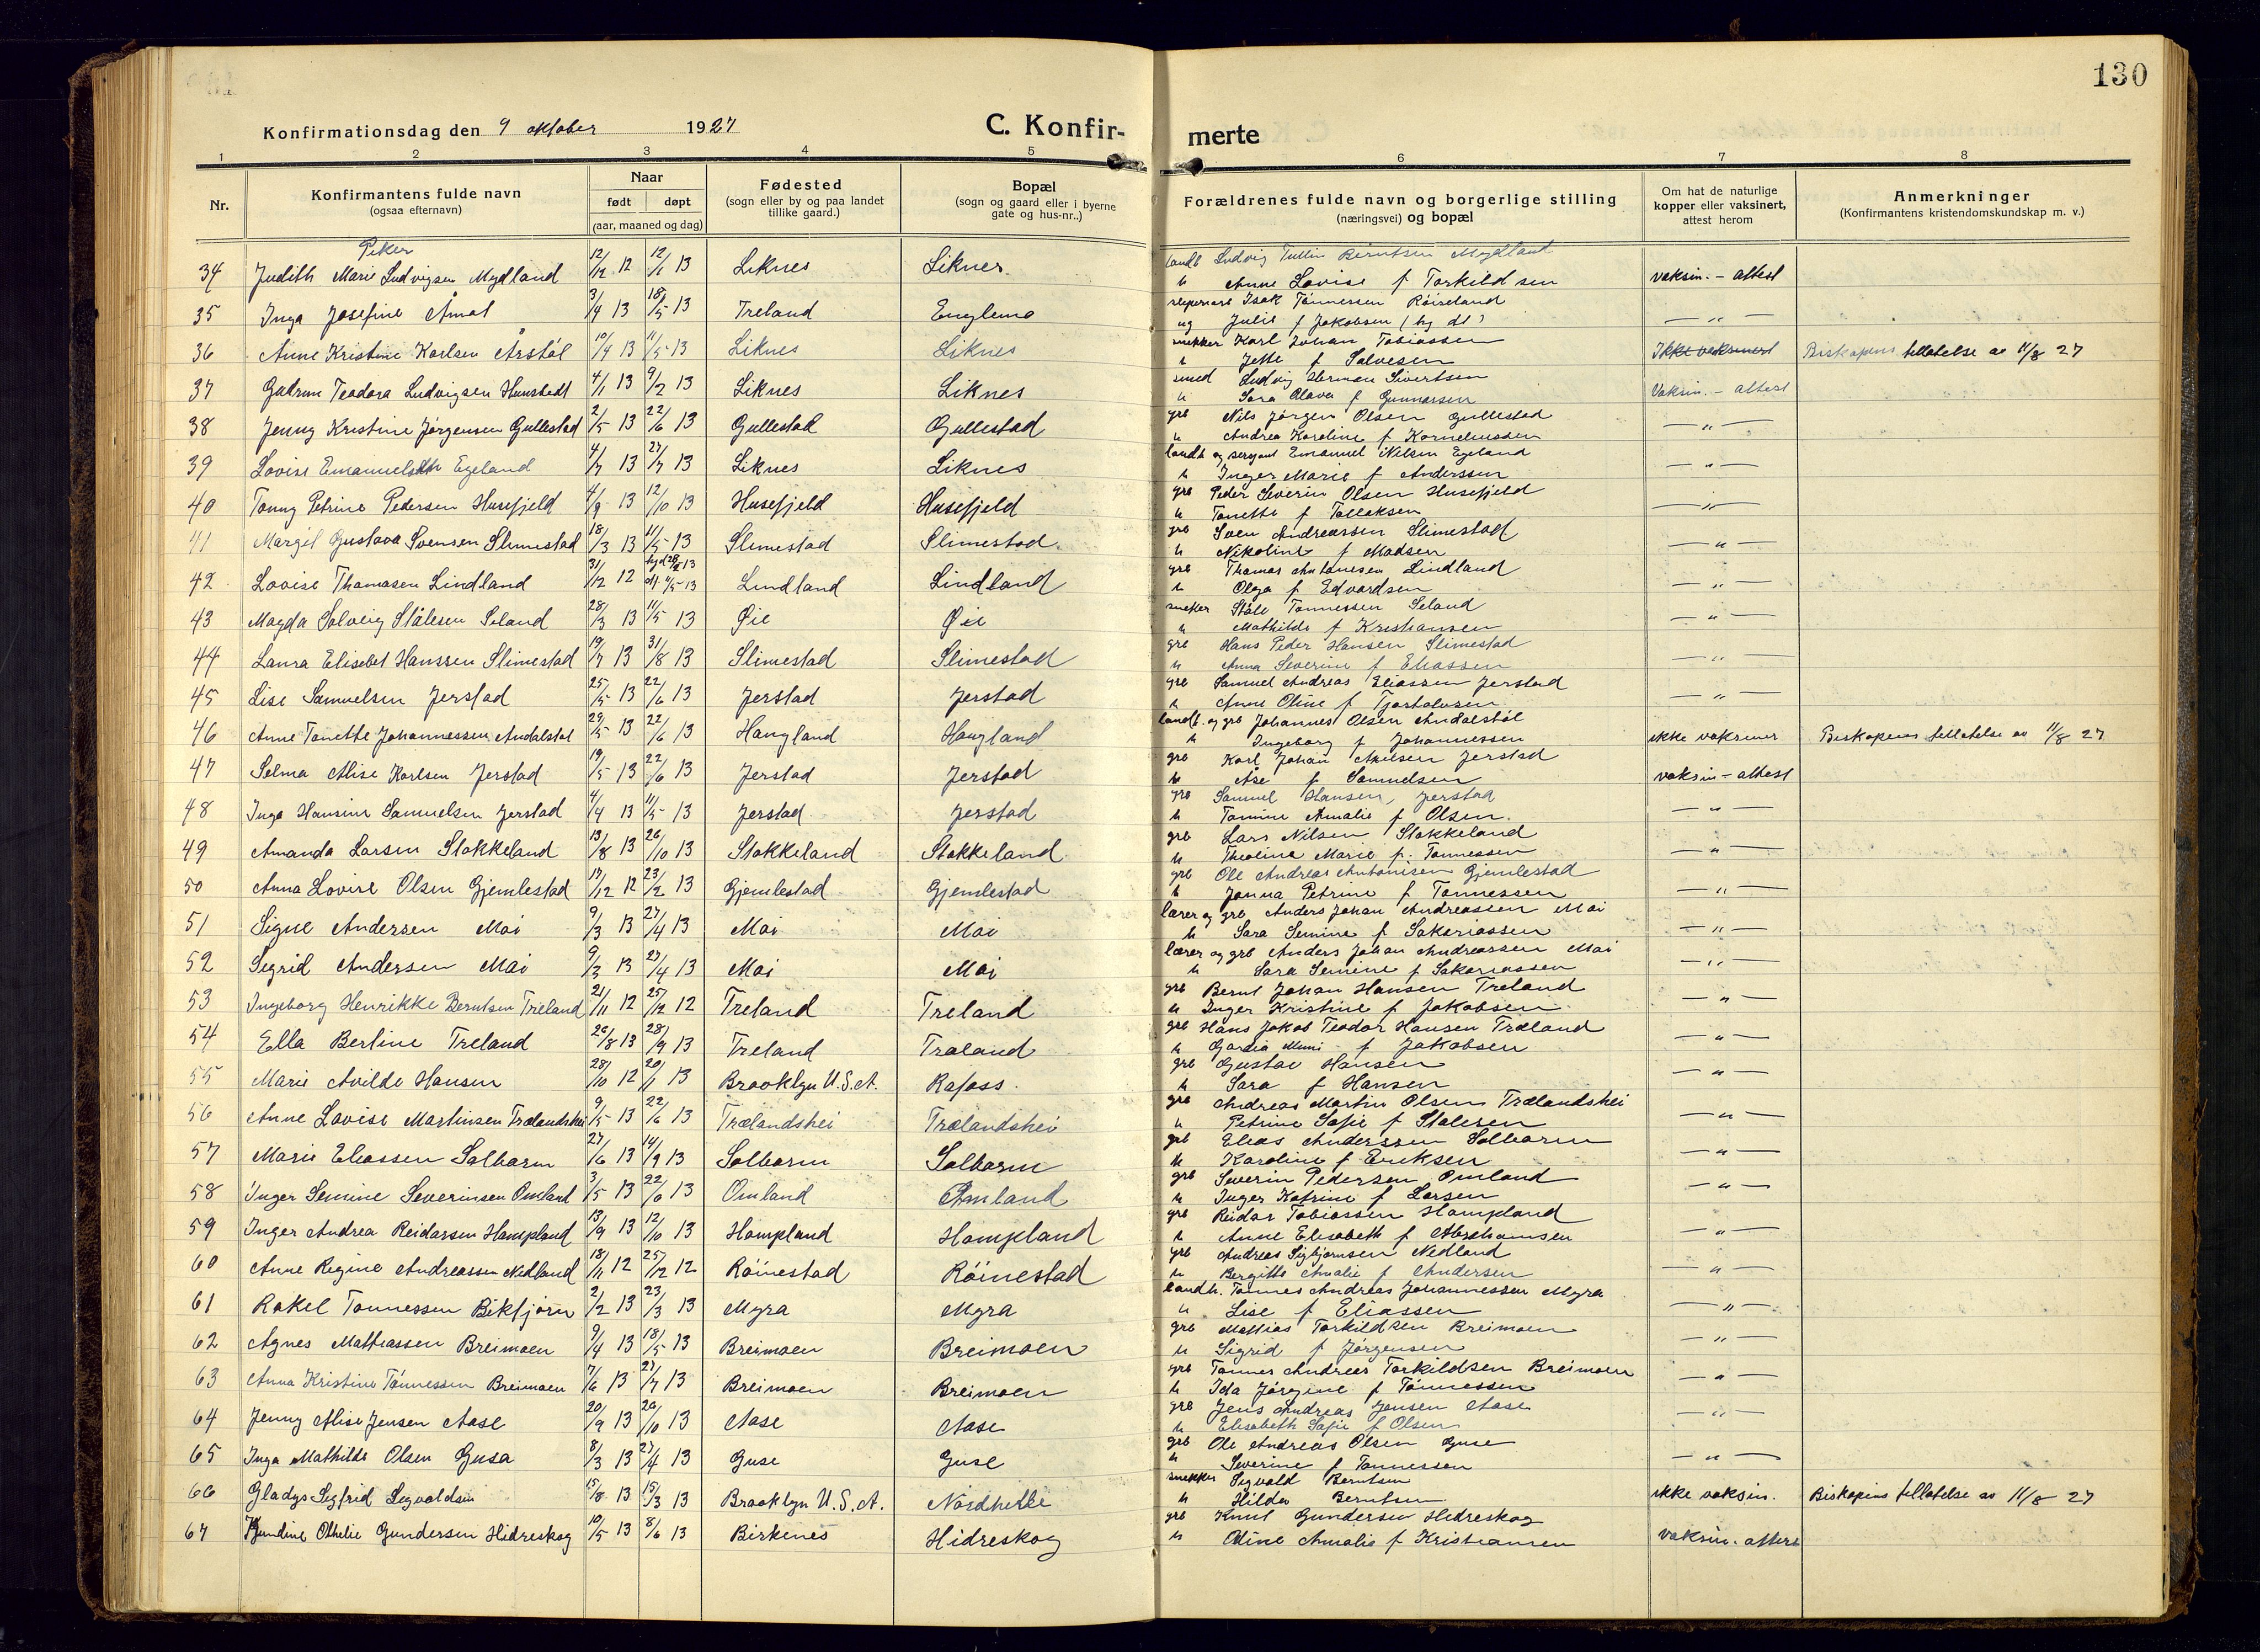 130
Konfirmationsdag den 9 oktober 1927
C. Konfir-
merte
1 2 3 4 5 6 7 8
Nr.
Konfirmantens fulde navn
(ogsaa efternavn)
Naar
født døpt
(aar, maaned og dag)
Fødested
(sogn eller by og paa landet
tillike gaard.)
Bopæl
(sogn og gaard eller i byerne
gate og hus-nr..)
Forældrenes fulde navn og borgerlige stilling
(næringsvei) og bopæl
Om hat de naturlige
kopper eller vaksinert,
attest herom
Anmerkninger
(Konfirmantens kristendomskundskap m. v.)
Piker
34 Judith Marie Ludvigsen Mydland 12/12 12 12/1 13 Liknes Liknes landb Ludvig Tullin Berntsen Mydland
h Anne Lovise f Torkildsen vaksin. - attest
35 Inga Josefine Åmot 3/4 13 18/5 13 Treland Englemo Isak Tønnessen Röiseland
ug Julie f Jakobsen - " -
36 Anne Kristine Karlsen Årstöl 10/4 13 11/5 13 Liknes Liknes snekker Karl Johan Tobiassen
h Jette f Salvesen Ikke vaksinert Biskopens tillatelse av 11/8 27
37 Gudrun Teodora Ludvigsen Hunstedt 4/1 13 9/2 13 Liknes Liknes smed Ludvig Herman Sivertsen
h Sara Olava f Gunnarsen Vaksin. - attest
38 Jenny Kristine Jørgensen Gullestad 2/5 13 22/6 13 Gullestad Gullestad grb Nils Jørgen Olsen Gullestad
h Andrea Karoline f Korneliussen - " -
39 Lovise Emanuels Egeland 4/7 13 27/7 13 Liknes Liknes landb og sersjant Emanuel Nilsen Egeland
h Inger Marie f Anderssen - " -
40 Tonny Petrine Pedersen Husefjeld 4/9 13 12/10 13 Husefjeld Husefjeld grb Peder Severin Olsen Husefjeld
h Tonette f Tolleksen - " -
41 Margit Gustava Svensen Slimestad 18/3 13 11/5 13 Slimestad Slimestad grb Sven Andreassen Slimestad
h Nikoline f Madsen - " -
42 Lovise Thomasen Lindland 31/12 12 Lindland Lindland grb Thomas Antonisen Lindland
h Olga f Edvardsen - " -
43 Magda Solveig Stålesen Seland 28/3 13 11/5 13 Øie Øie snekker Ståle Tønnessen Seland
h Mathilde f Kristiansen - " -
44 Laura Elisebet Hanssen Slimestad 19/7 13 31/8 13 Slimestad Slimestad grb Hans Peder Hansen Slimestad
h Anna Severine f Eliassen - " -
45 Lise Samuelsen Jerstad 25/5 13 22/6 13 Jerstad Jerstad grb Samuel Andreas Eliassen Jerstad
h Anne Oline f Tjostolvsen - " -
46 Anne Tonette Johannessen Andalstöl 29/5 13 22/6 13 Haugland Haugland landb. og grb Johannes Olsen Andalstöl
h Ingeborg f Johannessen ikke vaksiner Biskopens tillatelse av 11/8 27
47 Selma Alise Karlsen Jerstad 19/5 13 22/6 13 Jerstad Jerstad grb Karl Johan Akselsen Jerstad
h Åse f Samuelsen vaksin - attest
48 Inga Hansine Samuelsen Jerstad 4/4 13 11/5 13 Jerstad Jerstad grb Samuel Hansen, Jerstad
h Tomine Amalie f Olsen. - " -
49 Amanda Larsen Stokkeland 13/8 13 26/10 13 Stokkeland Stokkeland grb Lars Nilsen Stokkeland
h Theoline Marie f. Tønnessen - " -
50 Anna Lovise Olsen Gjemlestad 19/12 12 23/2 13 Gjemlestad Gjemlestad grb Ole Andreas Antonisen Gjemlestad
h Jonna Petrine f Tønnessen - " -
51 Signe Andersen Moi 9/3 13 27/4 13 Moi Moi lærer og grb Anders Johan Andreassen Moi
h Sara Semine f Sakariassen - " -
52 Sigrid Andersen Moi 9/3 13 27/4 13 Moi Moi lærer og grb Anders Johan Andreassen Moi
h Sara Semine f Sakariassen - " -
53 Ingeborg Henrikke Berntsen Træland 21/11 12 25/12 12 Treland Treland grb Bernt Johan Hansen Treland
h Inger Kristine f Jakobsen - " -
54 Ella Berline Treland 26/8 13 28/9 13 Treland Træland grb Hans Jakob Teodor Hansen Træland
h f Jakobsen - " -
55 Marie Avilde Hansen 28/10 12 20/1 13 Brooklyn U.S.A. Rafoss. grb Gustav Hansen
h Sara f Hansen - " -
56 Anne Lovise Martinsen Trælandshei 9/5 13 22/6 13 Trælandshei Trælandshei grb Andreas Martin Olsen Trælandshei
h Petrine Sofie f Stalesen - " -
57 Marie Eliassen Solbarm 27/6 13 14/9 13 Solbarm Solbarm grb Elias Anderssen Solbarm
h Karoline f Eriksen - " -
58 Inger Semine Severinsen Omland 3/5 13 22/6 13 Omland Omland grb Severin Pedersen Omland
h Inger Katrine f Larsen - " -
59 Inger Andrea Reidarsen Hampland 13/9 13 12/10 13 Hampland Hampland grb Reidar Tobiassen Hampland
h Anne Elisabeth f Abrahamsen - " -
60 Anne Regine Andreassen Nedland 18/11 12 25/12 12 Röinestad Röinestad grb Andreas Sigbjørnsen Nedland
h Bergitte Amalie f Andersen - " -
61 Rakel Tonnessen Bikfjörn 2/2 13 23/3 13 Myra Myra landh. Tønnes Andreas Johannessen Myra
h Lise f Eliassen - " -
62 Agnes Mathiassen Breimoen 9/4 13 18/5 13 Breimoen Breimoen grb Mathias Torkildsen Breimoen
h Sigrid f Jørgensen - " -
63 Anna Kristine Tönnessen Breimoen 7/6 13 27/7 13 Breimoen Breimoen grb Tønnes Andreas Torkildsen Breimoen
h Ida Jørgine f Tönnessen - " -
64 Jenny Alise Jensen Aase 20/9 13 26/10 13 Aase Aase grb Jens Andreas Jensen Aase
h Elisabeth Sofie f Olsen - " -
65 Inga Mathilde Olsen Gusa 8/3 13 27/4 13 Guse Guse grb Ole Andreas Olsen Guse
h Severine f Tønnessen - " -
66 Gladys Sigfrid Sigvaldsen 15/8 13 15/3 13 Brooklyn U.S.A. Nordhelle snekker Sigvald Berntsen
h Hilda Berntsen ikke vaksin. Biskopens tillatelse av 11/8 27
67 Gundine Othelie Gundersen Hidreskog 10/5 13 8/6 13 Birkenes Hidreskog grb Knut Gundersen Hidreskog
h Oline Amalie f Kristiansen vaksin. attest